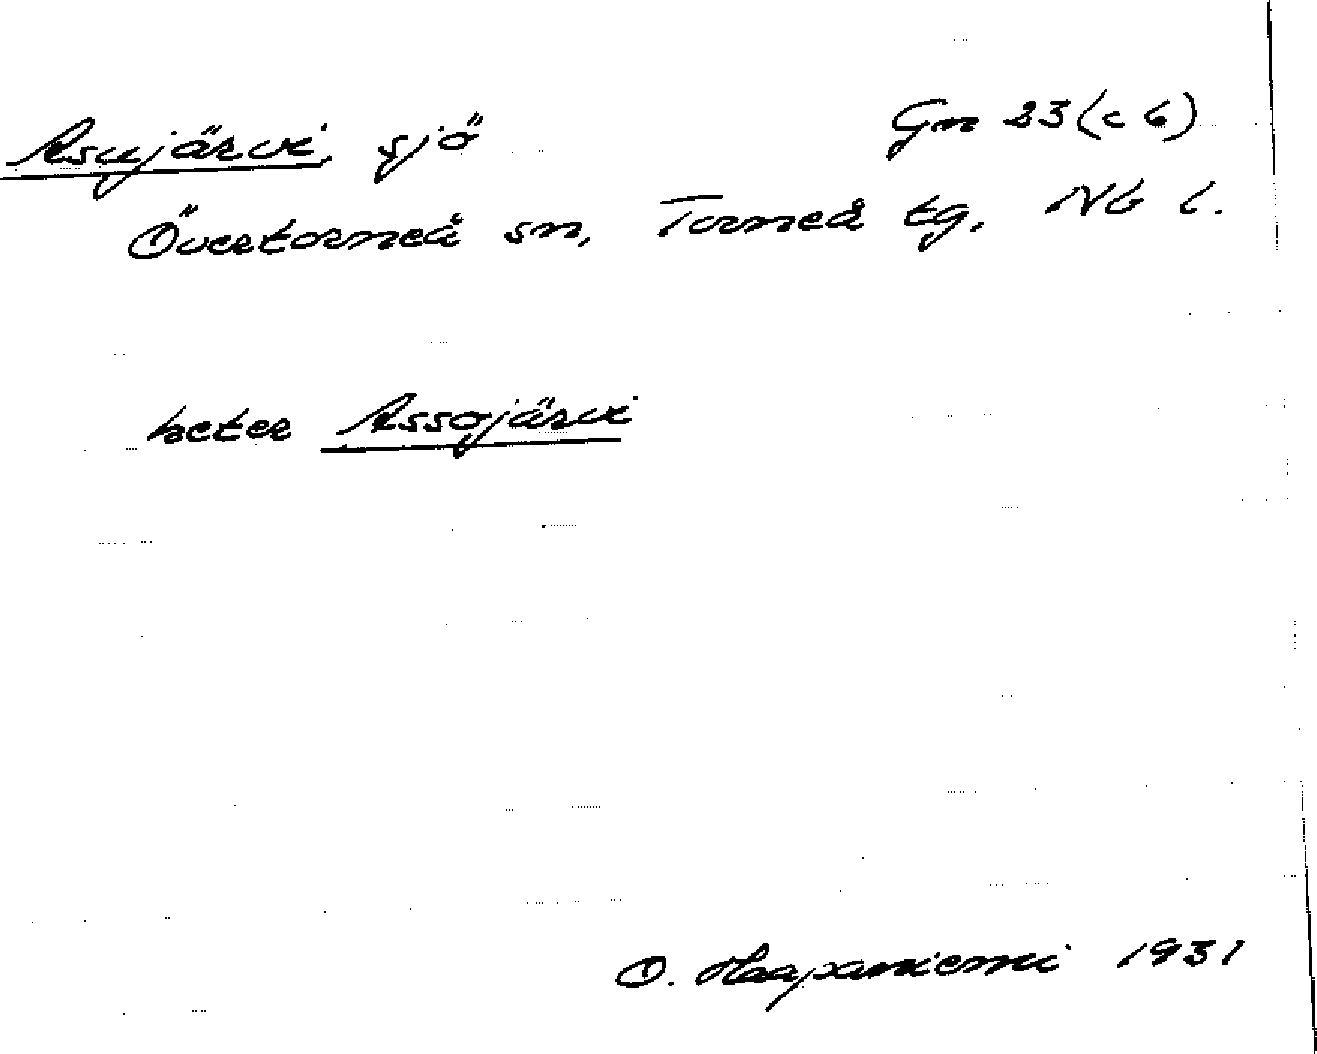 Asujärvi, sjö Gn 23 (c 6)
Övertorneå sn, Torneå tg, Nb l.
heter Assojärvi
O. Haapaniemi 1931